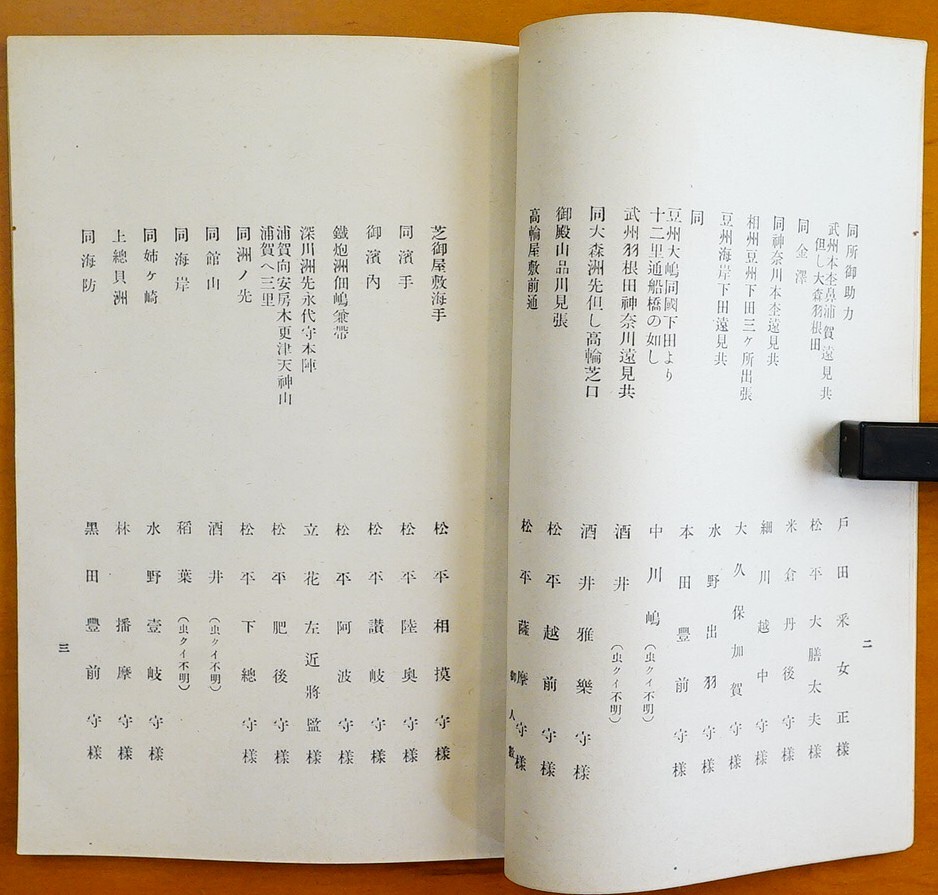 同所御助力　戸田釆女正様
武州本杢鼻浦賀遠見共
但し大森羽根田　松平大膳太夫様
同金澤　米倉丹後守様
同神奈川本杢遠見共　細川越中守様
相州豆州下田三ヶ所出張　大久保加賀守様
豆州海岸下田遠見共　水野出羽守様
同　本田豊前守様
豆州大嶋同國下田より
十二里通船橋の如し　中川嶋（虫クイ不明）
武州羽根田神奈川遠見共　酒井（虫クイ不明）
同大森洲先但し高輪芝口　酒井雅樂守様
御殿山品川見張　松平越前守様
高輪屋敷前通　松平薩摩守様
二
芝御屋敷海手　松平相摸守様
同濱手　松平陸奥守様
御濱内　松平讃岐守様
鐵炮洲佃嶋兼帶　松平阿波守様
深川洲先永代守本陣　立花左近將監様
浦賀向安房木更津天神山
浦賀へ三里　松平肥後守様
同洲ノ先　松平下總守様
同館山　酒井（虫クイ不明）
同海岸　稻葉（虫クイ不明）
同姉ヶ崎　水野壹岐守様
上總貝洲　林播摩守様
同海防　黒田豊前守様
三